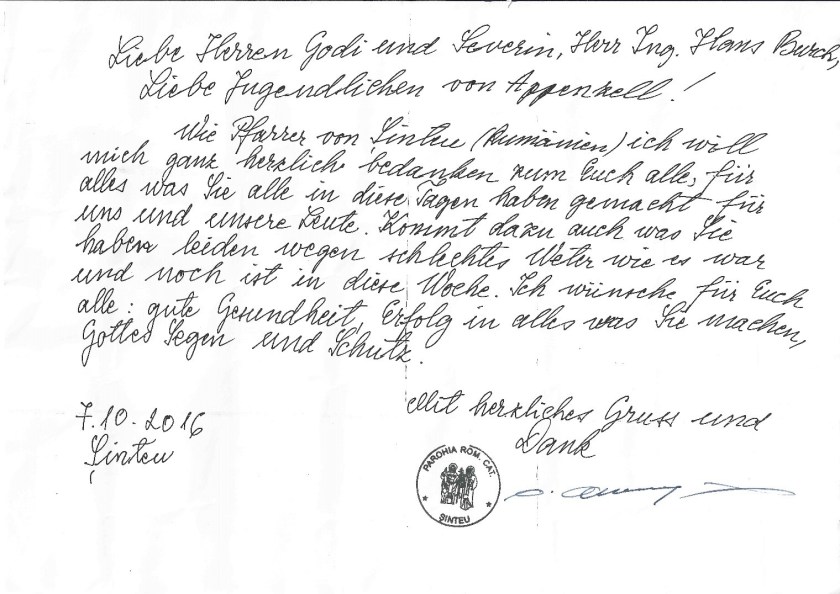 Liebe Herren Godi und Severin, Herr Ing. Hans Burch,
Liebe Jugendlichen von Appenzell!
Wie Pfarrer von Șinteu (Rumänien) ich will
mich ganz herzlich bedanken zum Euch alle, für
alles was Sie alle in diese Tagen haben gemacht für
uns und unsere Leute. Kommt dazu auch was Sie
haben leiden wegen schlechtes Weter wie es war
und noch ist in diese Woche. Ich wünsche für Euch
alle: gute Gesundheit, Erfolg in alles was Sie machen,
Gottes Segen und Schutz.
Mit herzliches Gruss und
Dank
7.10.2016
Șinteu
PAROHIA ROM. CAT.
ȘINTEU